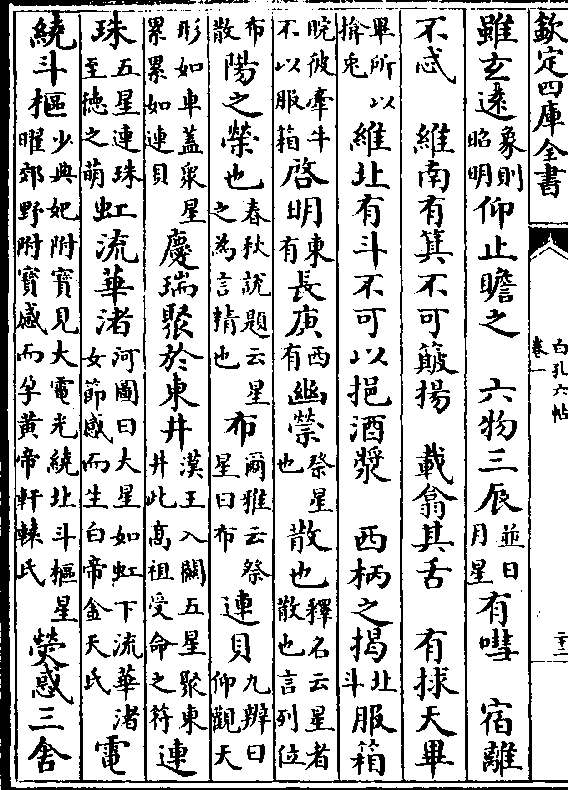 欽定四庫全書
雖玄遠象則昭明仰止瞻之 六物三辰並日月星有嘒 宿離
不忒 維南有箕不可簸揚 載翕其舌 有捄天畢
畢所以揜兔 維北有斗不可以挹酒漿 西柄之揭北斗服箱
睆彼牽牛不以服箱啓明東有長庚西有幽禜祭星也 散也釋名云星者散也言列位
布散陽之榮也春秋說題云星之為言精也 布爾雅云祭星曰布 連貝九辯曰仰觀天
形如車蓋衆星累累如連貝 慶瑞聚於東井漢王入關五星聚東井此高祖受命之符 連
珠五星連珠至德之萌虹流華渚河圖曰大星如虹下流華渚女節感而生白帝金天氏 電
繞斗樞少典妃附寶見大電光繞北斗樞星曜郊野附寶感而孕黃帝軒轅氏 熒惑三舍
白孔六帖
卷一